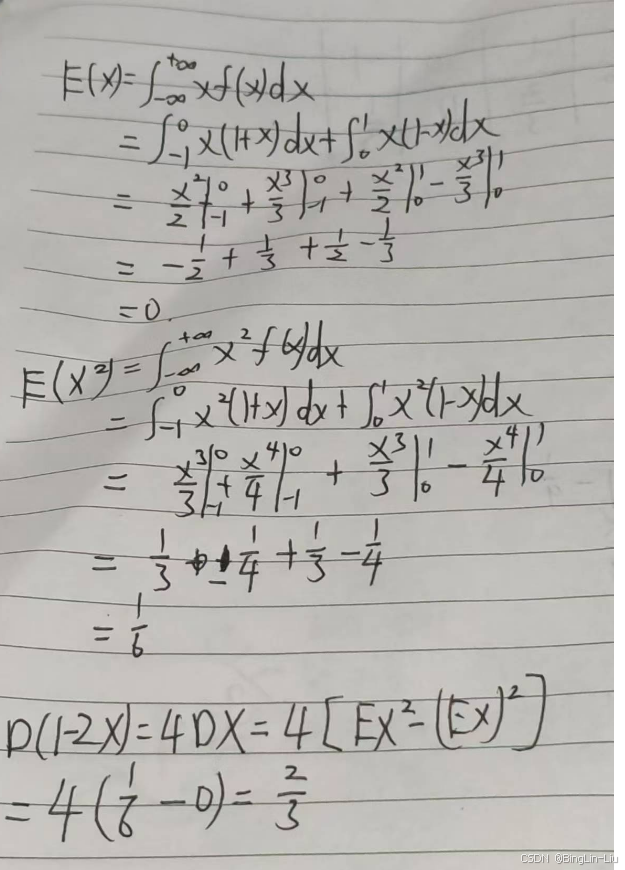 E(x)=∫_{-∞}^{+∞} xf(x)dx
= ∫_{-1}^{0} x(1+x)dx+∫_{0}^{1} x(1-x)dx
= x²/2|_{-1}^{0} + x³/3|_{-1}^{0} + x²/2|_{0}^{1} - x³/3|_{0}^{1}
= -1/2 + 1/3 + 1/2 - 1/3
=0.
E(X²)=∫_{-∞}^{+∞} x²f(x)dx
= ∫_{-1}^{0} x²(1+x)dx+∫_{0}^{1} x²(1-x)dx
= x³/3|_{-1}^{0} + x⁴/4|_{-1}^{0} + x³/3|_{0}^{1} - x⁴/4|_{0}^{1}
= 1/3 - 1/4 + 1/3 - 1/4
= 1/6
D(1-2X)=4DX=4[EX²-(EX)²]
=4(1/6-0)=2/3
CSDN @BingLin-Liu